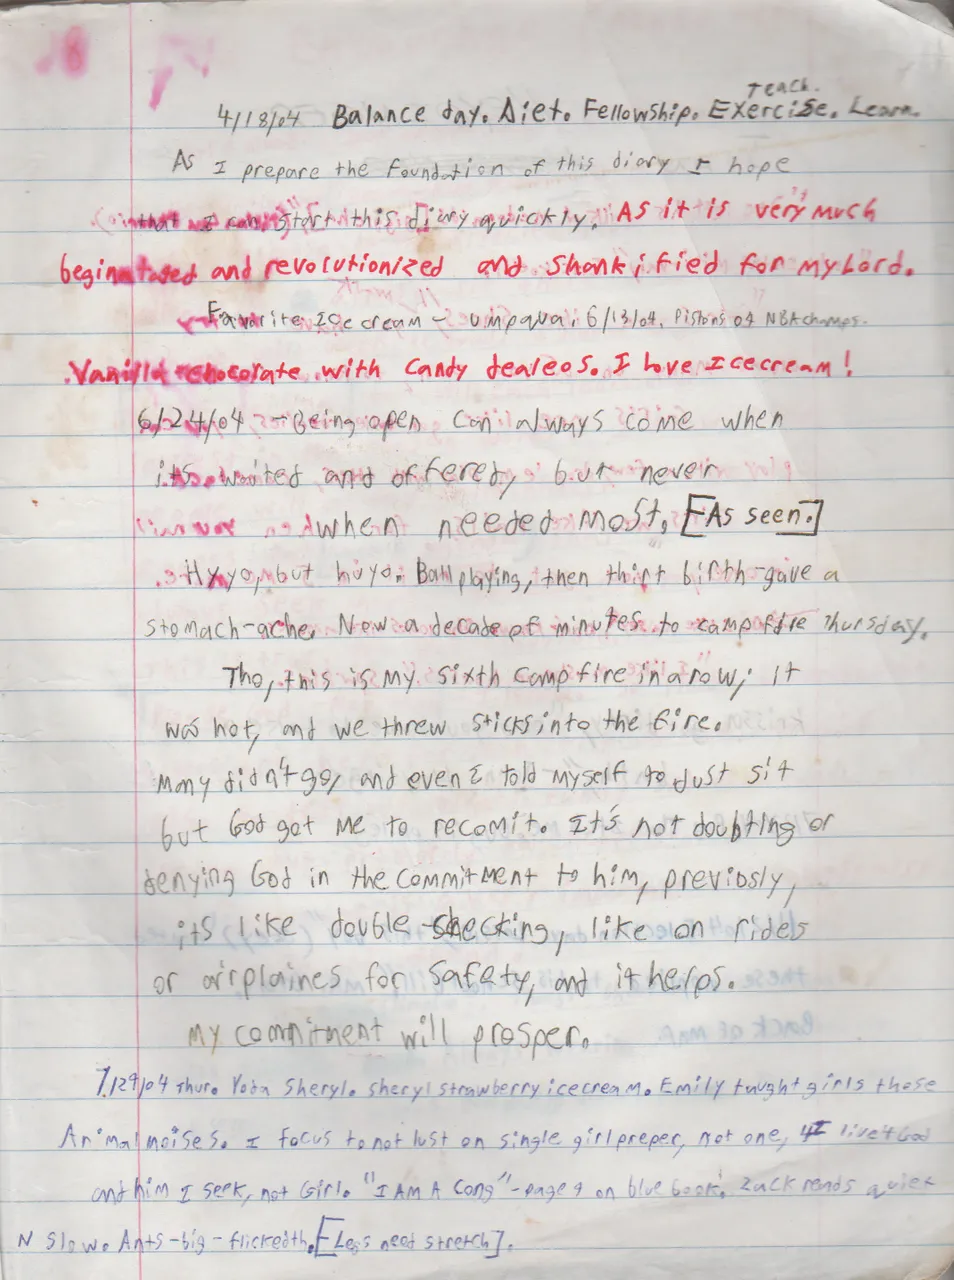 Teach.
4/18/04 Balance day. Diet. Fellowship. Exercise. Learn.
As I prepare the foundation of this diary I hope
that I can start this diary quickly. As it is very much
and revolutionized and Shankified for my Lord.
Favorite Ice cream - Umpqua. 6/13/04. Pistons 04 NBA champs.
Vanilla chocolate with Candy dealeos. I love Icecream!
6/24/04 - Being open can always come when
its waited and offered, but never
when needed most. [As seen.]
Hyyo, but huyo. Ball playing, then thirt birth-gave a
stomach-ache. Now a decade of minutes to camp fire Thursday.
Tho, this is my sixth campfire in a row; it
was hot, and we threw sticks into the fire.
Many didn't go, and even I told myself to Just sit
but God got me to recomit. It's not doubting or
denying God in the commitment to him, previosly,
its like double checking, like on rides
or airplaines for safety, and it helps.
My commitment will prosper.
7/29/04 Thur. Yoda Sheryl. Sheryl strawberry icecream. Emily taught girls those
Animal noises. I focus to not lust on single girl preper, not one, I live 4 God
and him I seek, not Girl. "I AM A Cong" - page 9 on blue book. Zack reads quiet
N slow. Ants-big-flickedth. [Legs need stretch].